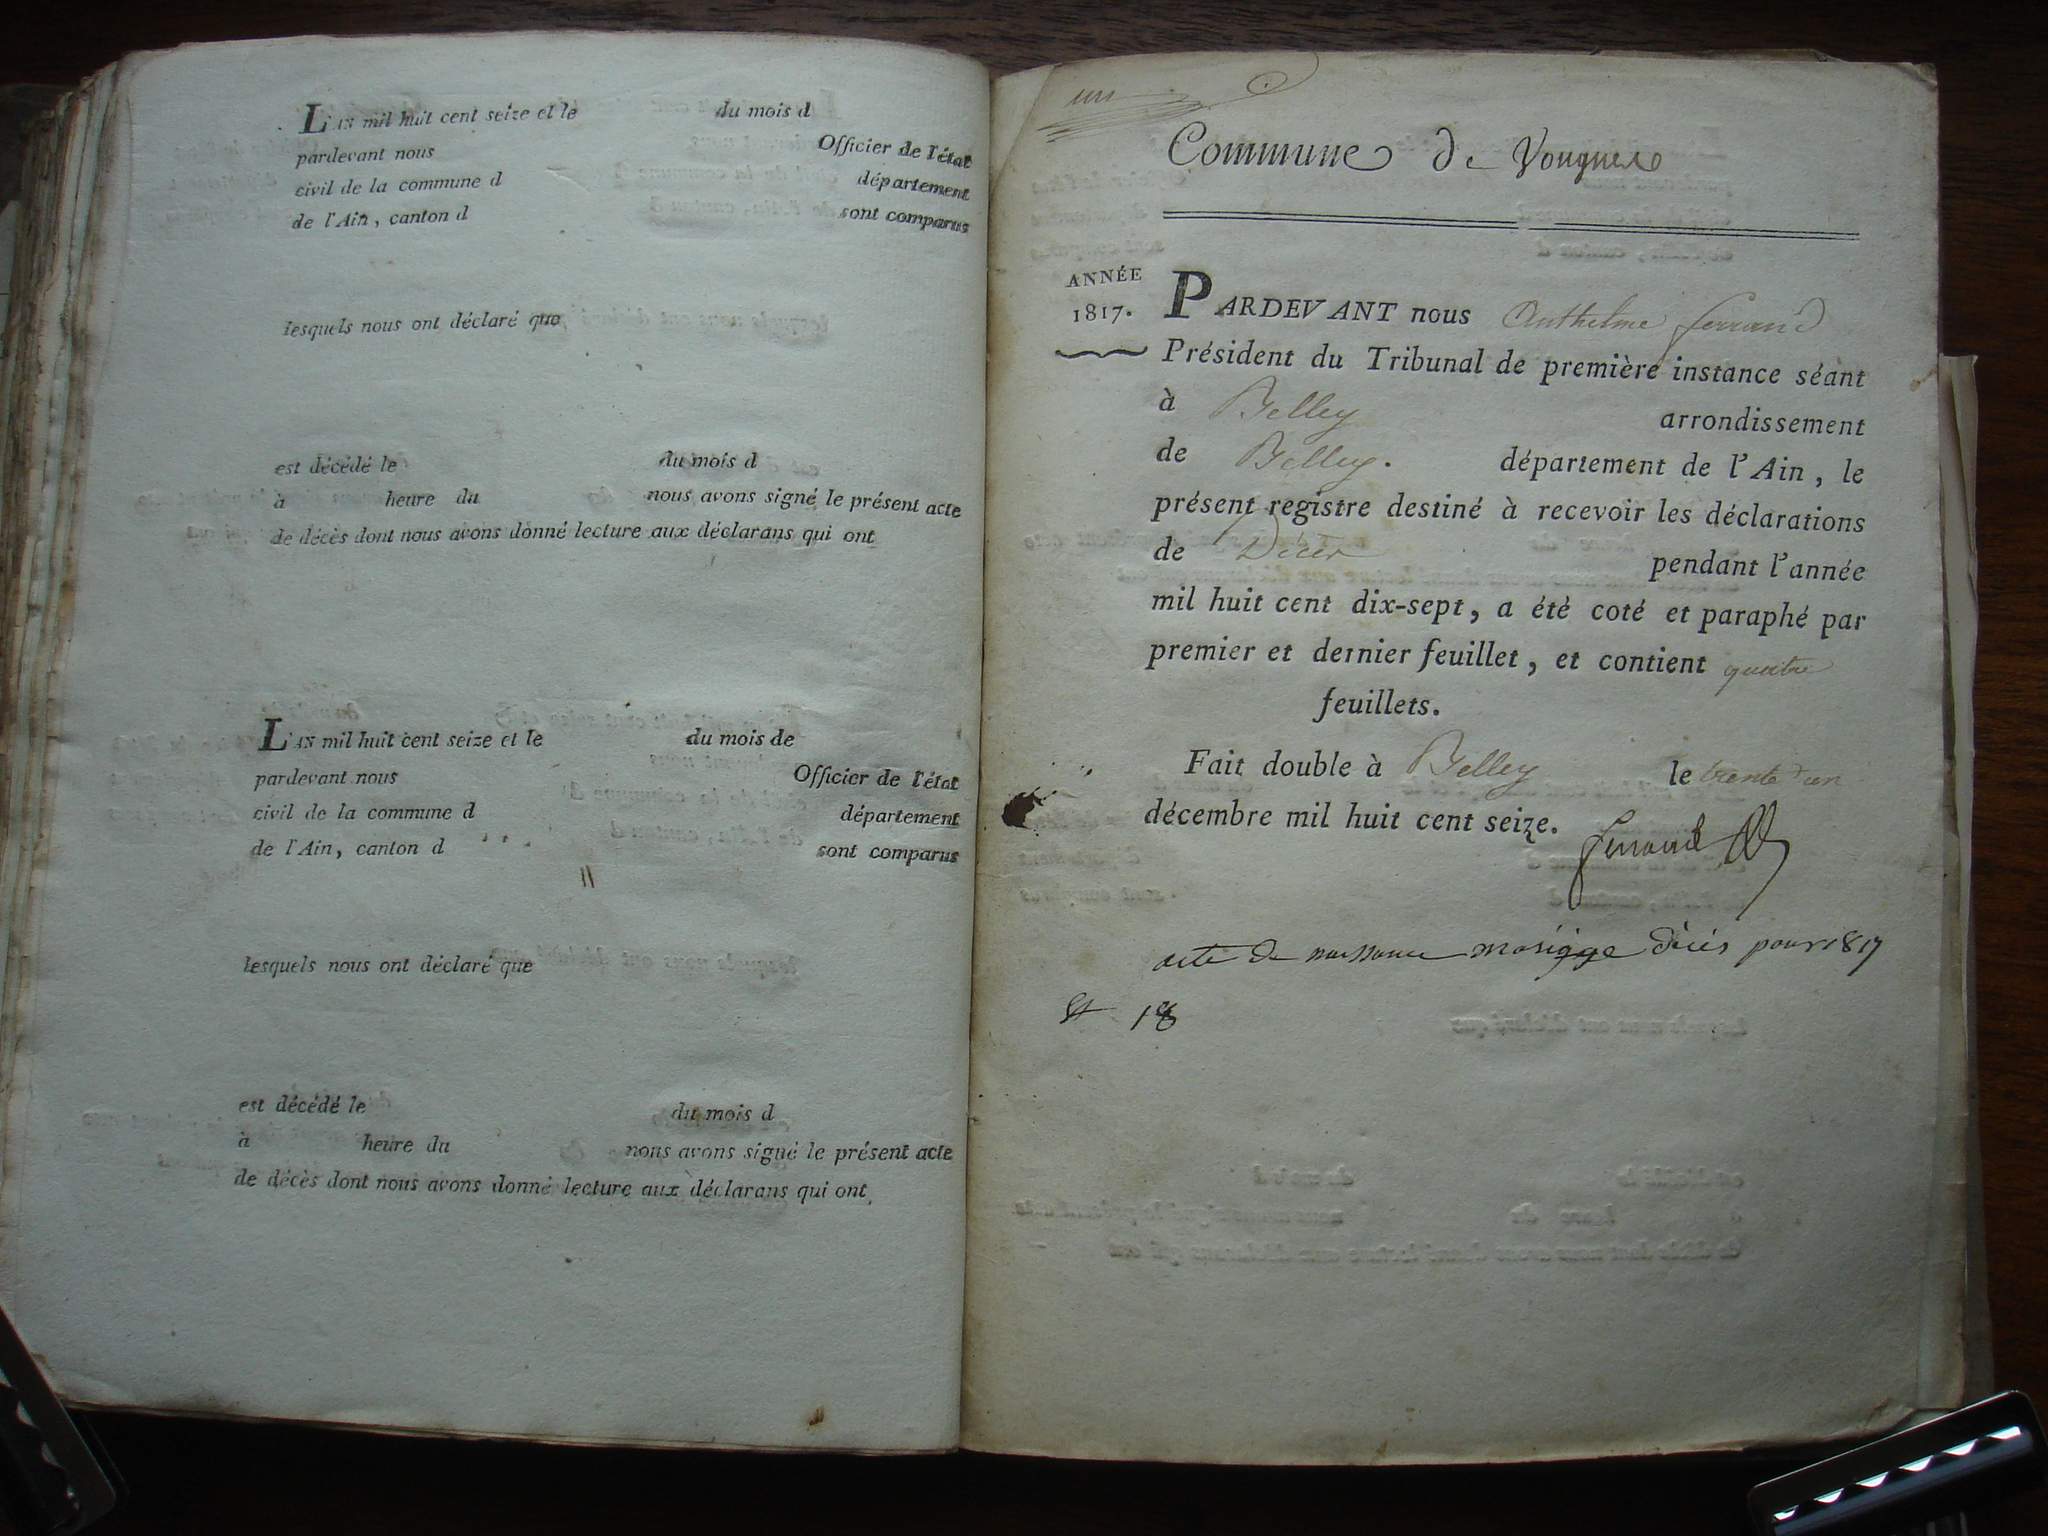 L'AN mil huit cent seize et le du mois d
pardevant nous Officier de l'état
civil de la commune d département
de l'Ain, canton d sont comparus
lesquels nous ont déclaré que
est décédé le du mois d
à heure du nous avons signé le présent acte
de décès dont nous avons donné lecture aux déclarans qui ont
L'AN mil huit cent seize et le du mois de
pardevant nous Officier de l'état
civil de la commune d département
de l'Ain, canton d sont comparus
lesquels nous ont déclaré que
est décédé le du mois d
à heure du nous avons signé le présent acte
de décès dont nous avons donné lecture aux déclarans qui ont
un
Commune de
ANNÉE
1817.
PARDEVANT nous Anthelme ferrand
Président du Tribunal de première instance séant
à Belley arrondissement
de Belley. département de l'Ain, le
présent registre destiné à recevoir les déclarations
de Décès pendant l'année
mil huit cent dix-sept, a été coté et paraphé par
premier et dernier feuillet, et contient quatre
feuillets.
Fait double à Belley le trente un
décembre mil huit cent seize.
ferrand
acte de naissance mariage décès pour 1817
et 18